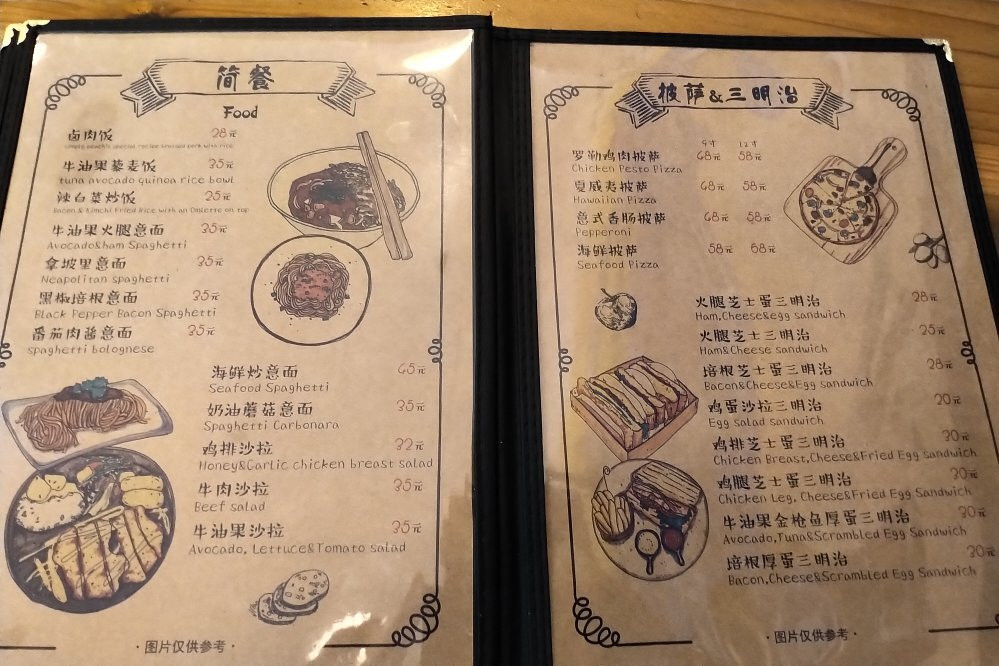 简餐
Food
卤肉饭 28元
牛油果藜麦饭 35元
tuna avocado quinoa rice bowl
辣白菜炒饭 25元
Bacon & Kimchi Fried Rice with an Omlette on top
牛油果火腿意面 35元
Avocado&ham Spaghetti
拿坡里意面 35元
Neapolitan spaghetti
黑椒培根意面 35元
Black Pepper Bacon Spaghetti
番茄肉酱意面 35元
spaghetti bolognese
海鲜炒意面 65元
Seafood Spaghetti
奶油蘑菇意面 35元
Spaghetti Carbonara
鸡排沙拉 32元
Honey&Garlic chicken breast salad
牛肉沙拉 35元
Beef salad
牛油果沙拉 35元
Avocado, Lettuce&Tomato salad
·图片仅供参考·
披萨&三明治
9寸 12寸
罗勒鸡肉披萨 68元 58元
Chicken Pesto Pizza
夏威夷披萨 68元 58元
Hawaiian Pizza
意式香肠披萨 68元 58元
Pepperoni
海鲜披萨 58元 68元
Seafood Pizza
火腿芝士蛋三明治 28元
Ham,Cheese&egg sandwich
火腿芝士三明治 25元
Ham&Cheese sandwich
培根芝士蛋三明治 28元
Bacon&Cheese&Egg sandwich
鸡蛋沙拉三明治 20元
Egg salad sandwich
鸡排芝士蛋三明治 30元
Chicken Breast,Cheese&Fried Egg sandwich
鸡腿芝士蛋三明治 30元
Chicken Leg, Cheese&Fried Egg Sandwich
牛油果金枪鱼厚蛋三明治 30元
Avocado,Tuna&Scrambled Egg Sandwich
培根厚蛋三明治 30元
Bacon,Cheese&Scrambled Egg Sandwich
·图片仅供参考·